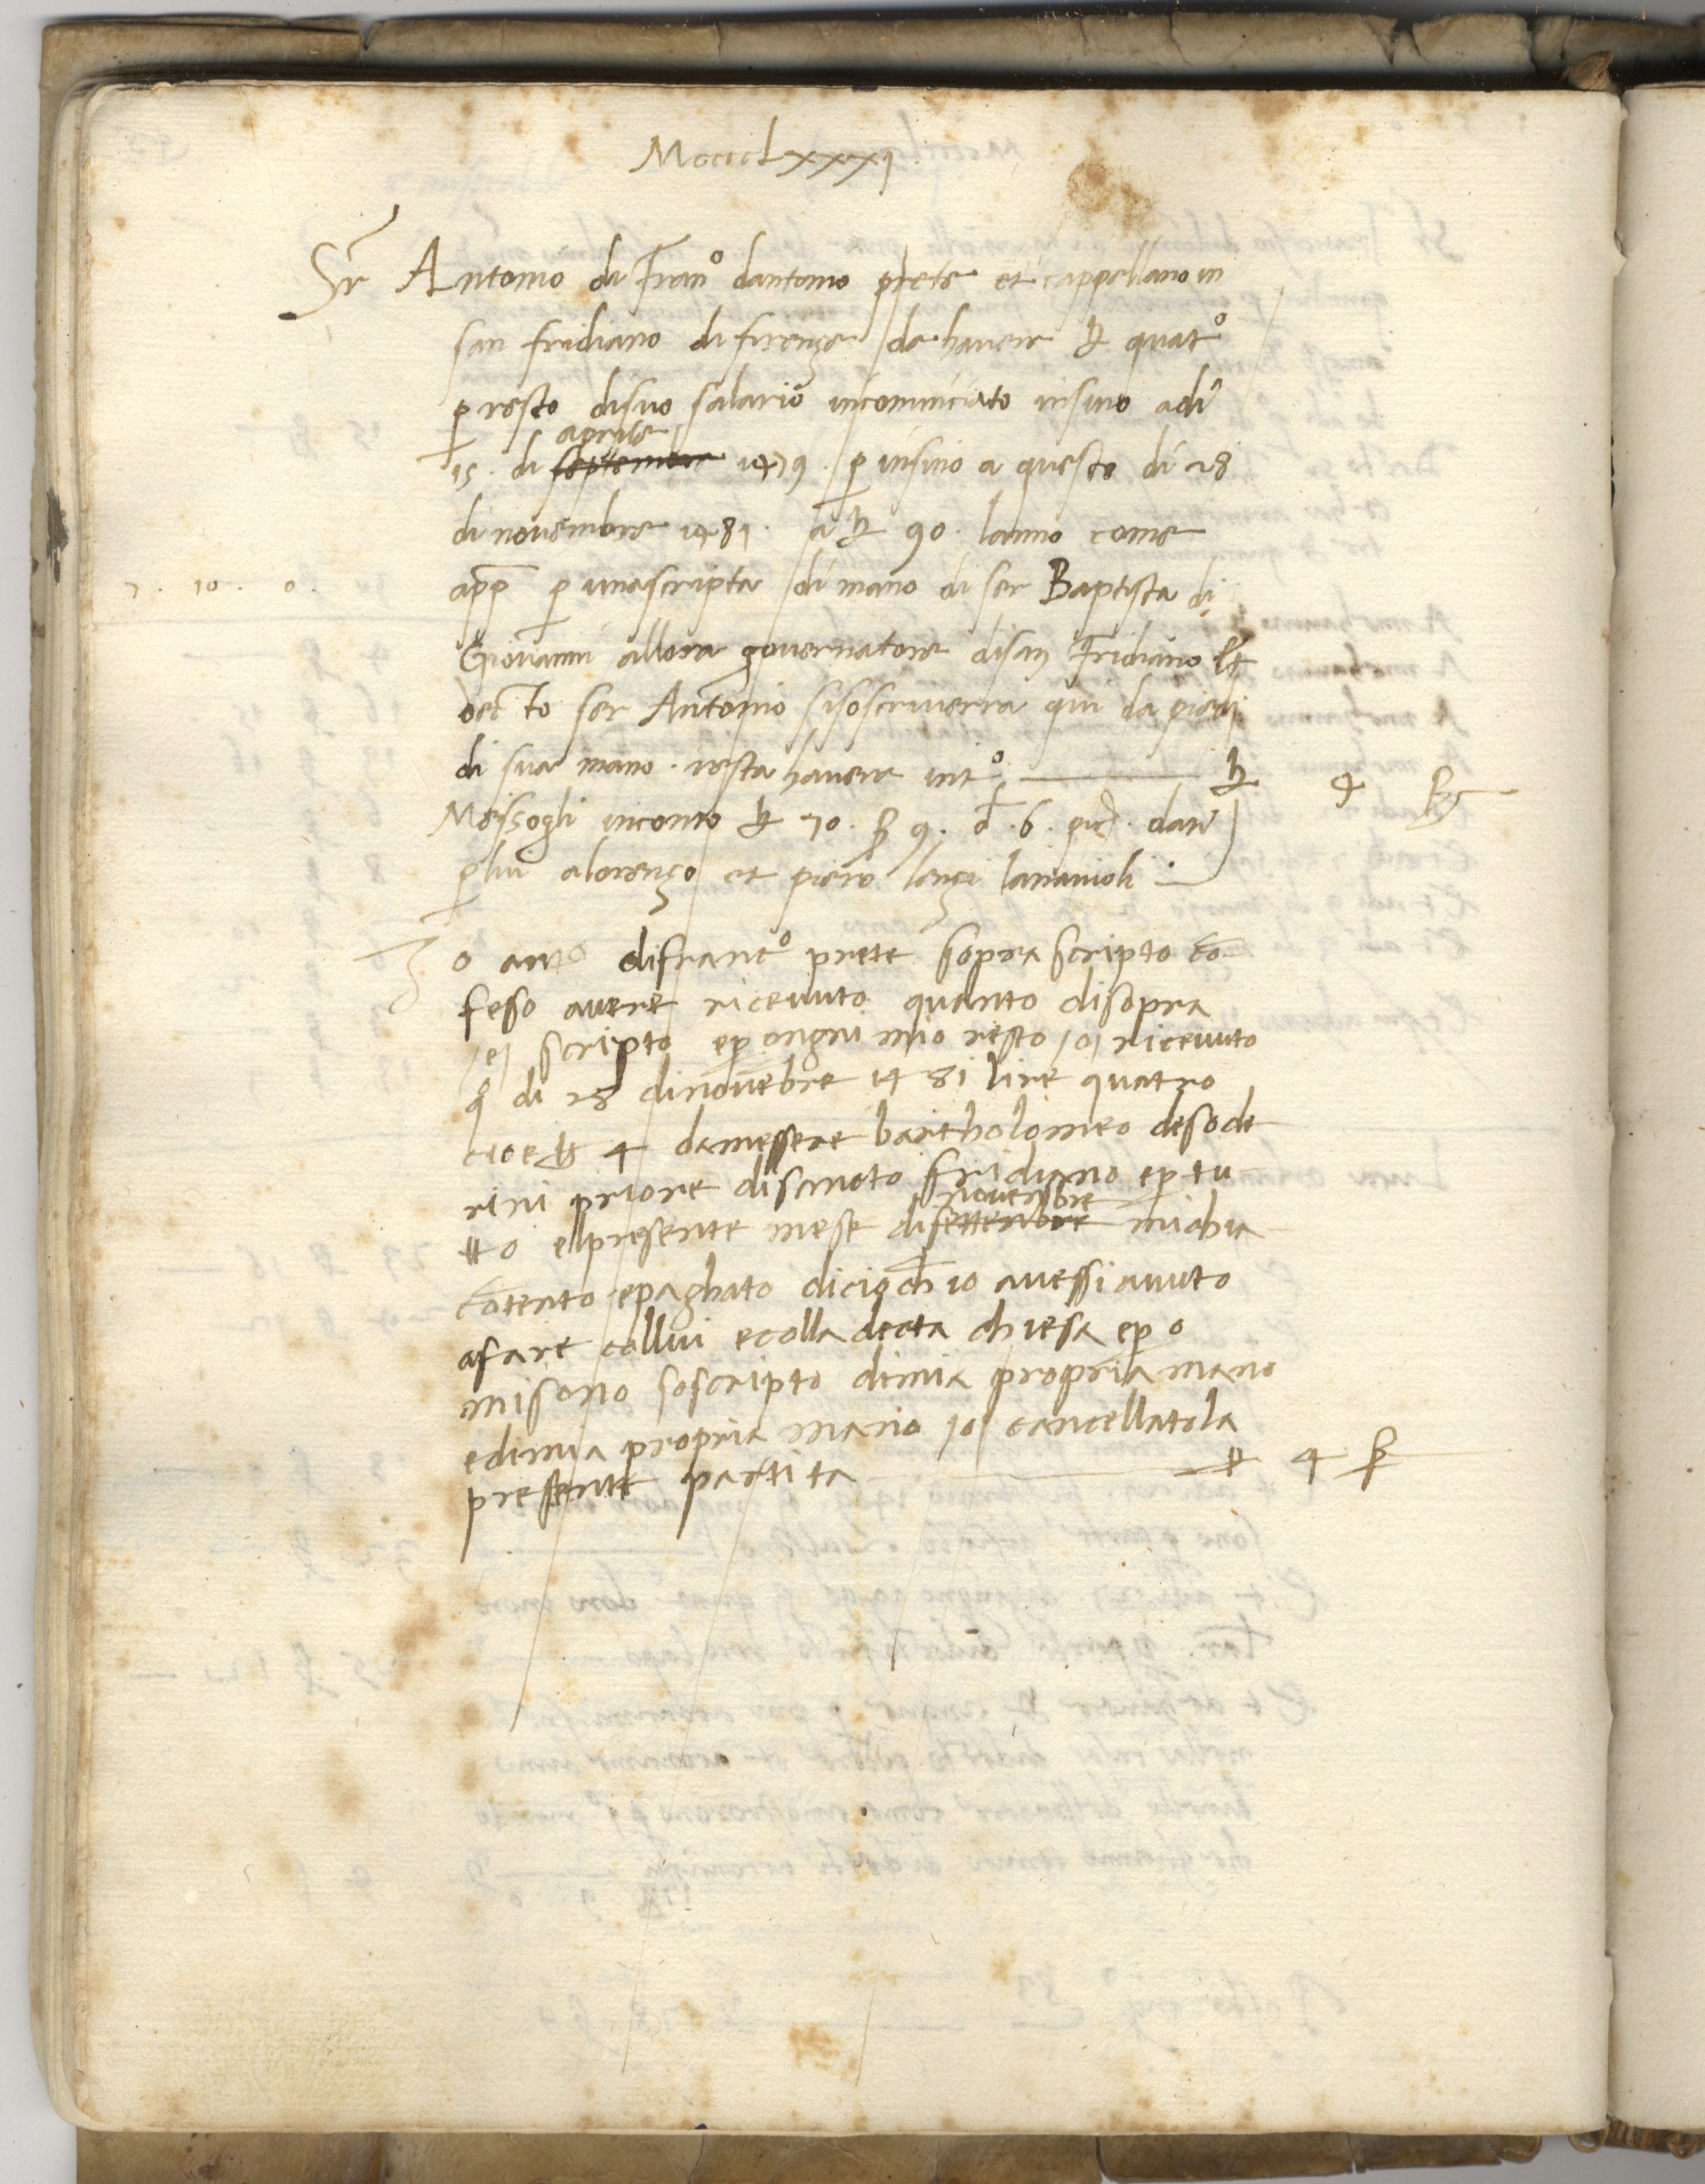 MccccLxxxj
Sr Antonio di Franco dantonio prete et cappellano in
san fridiano di firenze de havere ₶ quatro
p resto disuo salario incominciato insino adi
aprile
15. di septembre 1479. p insino a questo di 28
di novembre 1481. a ₶ 90. lanno come
7. 10. 0.
app p una scripta di mano di ser Baptista di
Giovanni allora governatore disan Fridiano Et
decto ser Antonio sisoscriverra qui da piedi
di sua mano. resta havere in to ₶ 4 ß
Messogli inconto ₶ 70. ß 9. d. 6. pic. dati
p lui a lorenzo et piero lenzi lanaiuoli
Io anto difranco prete sopra scripto co
feso avere ricevuto quanto disopra
/e/ scripto ep ongni mio resto /o/ ricevuto
qo di 28 dinovebre 1481 lire quatro
cioe ₶ 4 damessere bartholomeo desode
rini priore disancto fridiano ep tu
novembre
tto elpresente mese disettenbre miaha
cotento epaghato dicioch io avessi avuto
afare collui ecolla decta chiesa ep o
misono soscripto dimia propria mano
edimia propria mano /o/ cancellatola
presente partita ₶ 4 ß